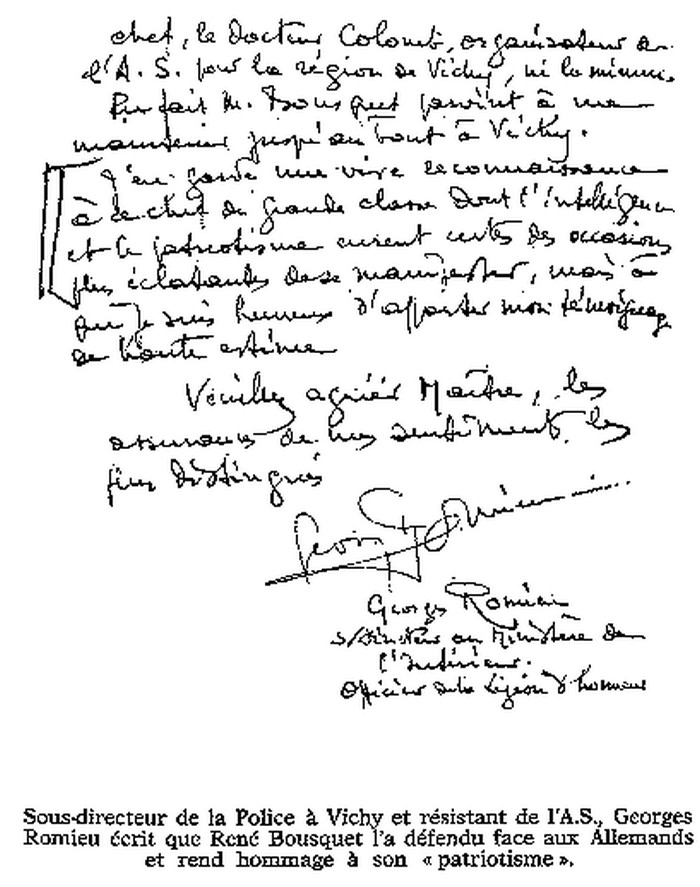 chef, le Docteur Colomb, organisateur de
l'A. S. pour la région de Vichy, ni le mien.
En fait M. Bousquet parvint à me
maintenir jusqu'au bout à Vichy.
J'en garde une vive reconnaissance
à ce chef de grande classe dont l'intelligence
et le patriotisme eurent certes des occasions
plus éclatantes de se manifester, mais à
qui je suis heureux d'apporter mon témoignage
de haute estime
Veuillez agréer Maître, les
assurances de mes sentiments les
plus distingués
Georges Romieu
s/Directeur au Ministère de
l'Intérieur.
Officier de la Légion d'honneur
Sous-directeur de la Police à Vichy et résistant de l'A.S., Georges
Romieu écrit que René Bousquet l'a défendu face aux Allemands
et rend hommage à son « patriotisme ».